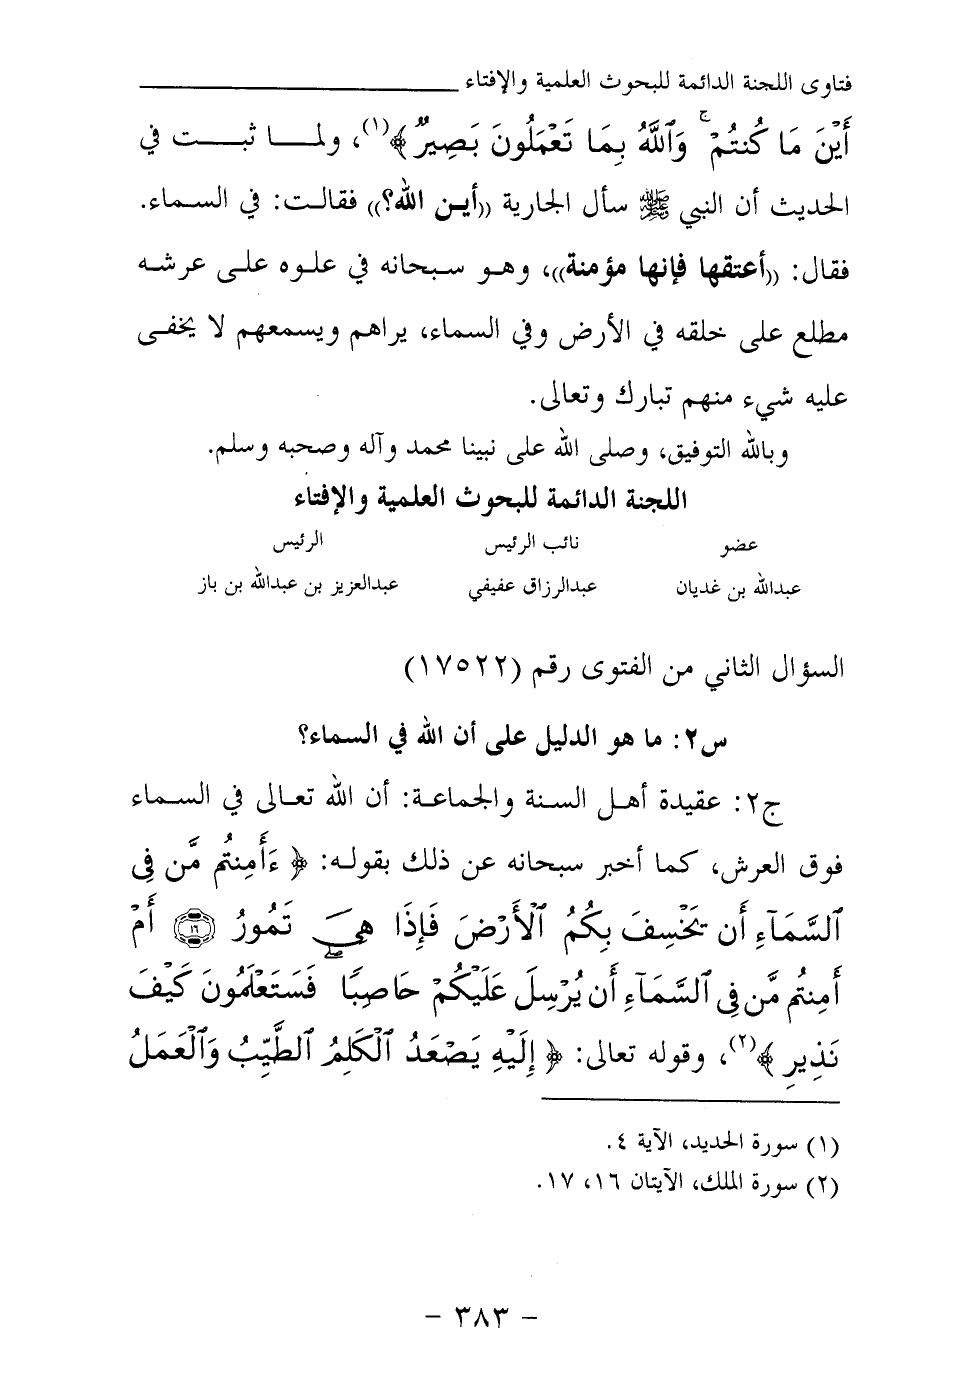 فتاوى اللجنة الدائمة للبحوث العلمية والإفتاء
أَيْنَ مَا كُنتُمْ ۚ وَٱللَّهُ بِمَا تَعْمَلُونَ بَصِيرٌ﴾(١)، ولما ثبت في
الحديث أن النبي ﷺ سأل الجارية ((أين الله؟)) فقالت: في السماء.
فقال: ((أعتقها فإنها مؤمنة))، وهو سبحانه في علوه على عرشه
مطلع على خلقه في الأرض وفي السماء، يراهم ويسمعهم لا يخفى
عليه شيء منهم تبارك وتعالى.
وبالله التوفيق، وصلى الله على نبينا محمد وآله وصحبه وسلم.
اللجنة الدائمة للبحوث العلمية والإفتاء
عضو نائب الرئيس الرئيس
عبدالله بن غديان عبدالرزاق عفيفي عبدالعزيز بن عبدالله بن باز
السؤال الثاني من الفتوى رقم (١٧٥٢٢)
س٢: ما هو الدليل على أن الله في السماء؟
ج٢: عقيدة أهل السنة والجماعة: أن الله تعالى في السماء
فوق العرش، كما أخبر سبحانه عن ذلك بقوله: ﴿ءَأَمِنتُم مَّن فِى
ٱلسَّمَآءِ أَن يَخْسِفَ بِكُمُ ٱلْأَرْضَ فَإِذَا هِىَ تَمُورُ ١٦ أَمْ
أَمِنتُم مَّن فِى ٱلسَّمَآءِ أَن يُرْسِلَ عَلَيْكُمْ حَاصِبًا فَسَتَعْلَمُونَ كَيْفَ
نَذِيرِ﴾(٢)، وقوله تعالى: ﴿إِلَيْهِ يَصْعَدُ ٱلْكَلِمُ ٱلطَّيِّبُ وَٱلْعَمَلُ
(١) سورة الحديد، الآية ٤.
(٢) سورة الملك، الآيتان ١٦، ١٧.
- ٣٨٣ -